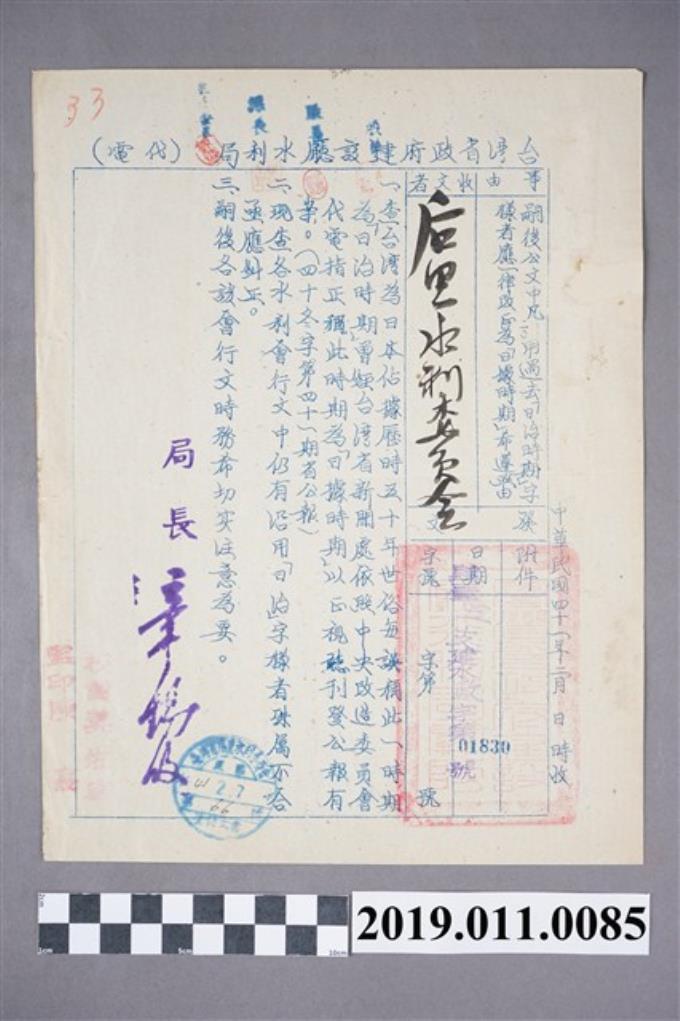 33
台灣省政府建設廳水利局（代電）
事由
嗣後公文中凡引用過去「日治時期」字
樣者應一律改正為「日據時期」希遵照由
收文者
后里水利委員會
發文
附件
日期
字號
字第 號
01830
中華民國四十一年二月 日 時收
一、查台灣為日本佔據歷時五十年世俗每誤稱此一時期
為「日治時期」曾經台灣省新聞處依照中央改造委員會
代電指正稱此時期為「日據時期」以正視聽刊登公報有
案。（四十冬字第四十一期省公報）
二、現查各水利會行文中仍有沿用「日治」字樣者殊屬不合
亟應糾正。
三、嗣後各該會行文時務希切實注意為要。
局長 章錫綬
監印
41.2.7
66
2019.011.0085
1cm 5cm 10cm